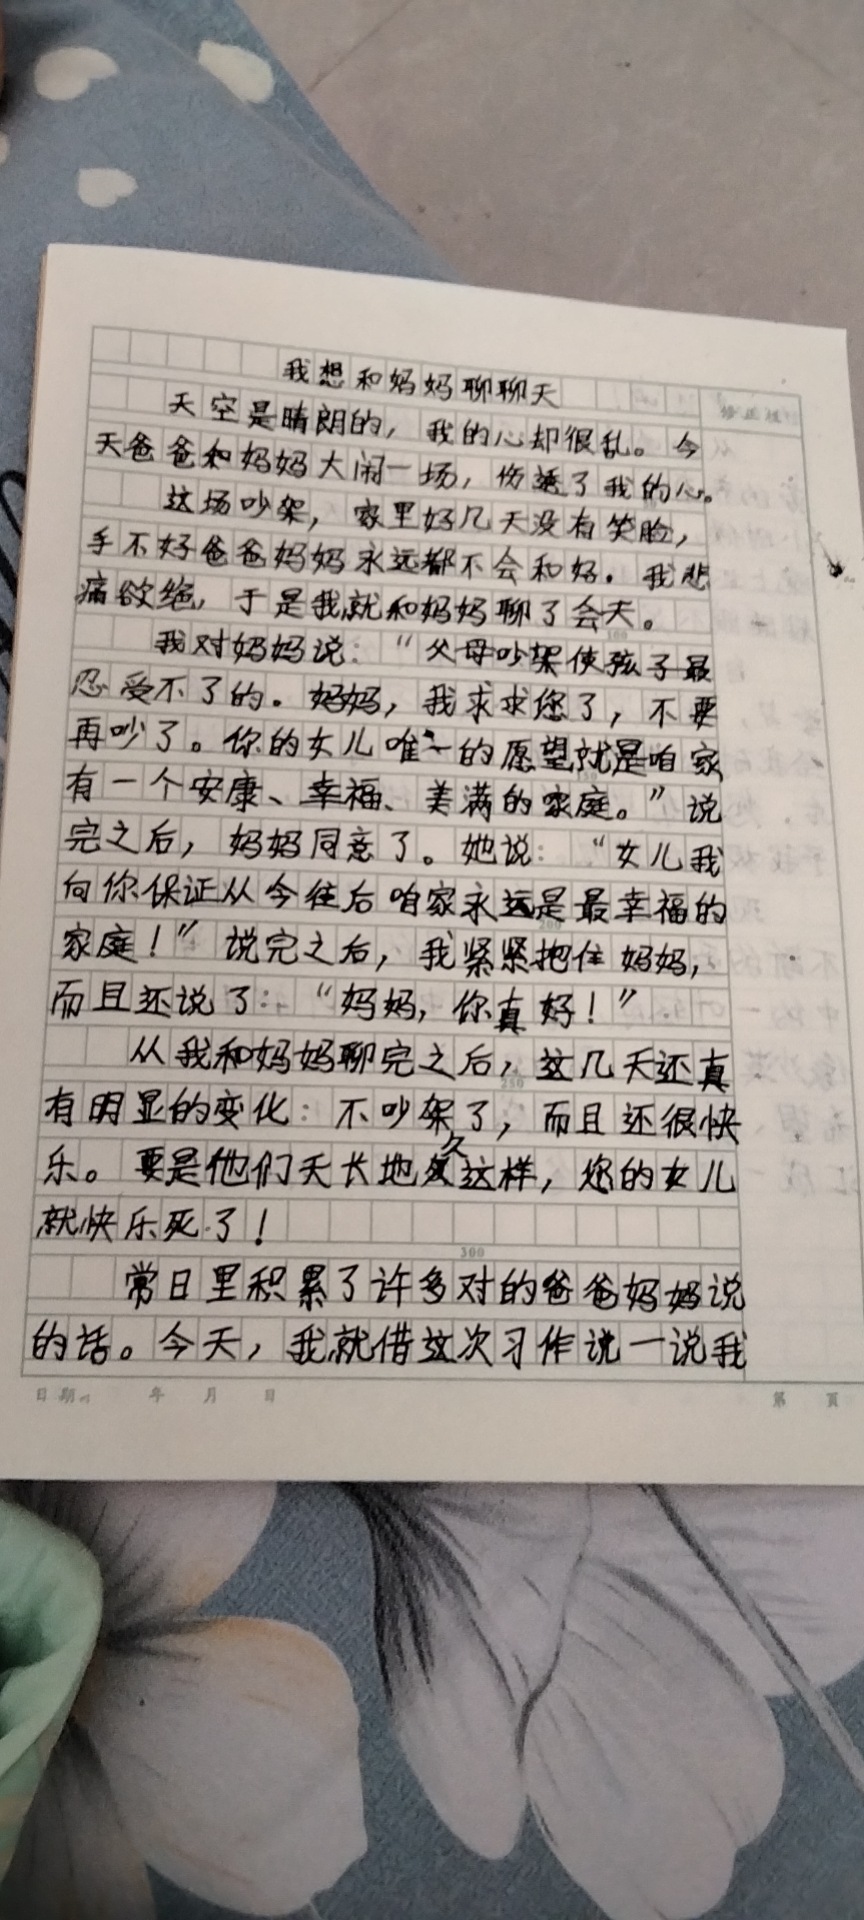 我想和妈妈聊聊天
天空是晴朗的，我的心却很乱。今
天爸爸和妈妈大闹一场，伤透了我的心。
这场吵架，家里好几天没有笑脸，
手不好爸爸妈妈永远都不会和好。我悲
痛欲绝，于是我就和妈妈聊了会天。
我对妈妈说：“父母吵架使孩子最
忍受不了的。妈妈，我求求您了，不要
再吵了。你的女儿唯一的愿望就是咱家
有一个安康、幸福、美满的家庭。”说
完之后，妈妈同意了。她说：“女儿我
向你保证从今往后咱家永远是最幸福的
家庭！”说完之后，我紧紧抱住妈妈，
而且还说了：“妈妈，你真好！”
从我和妈妈聊完之后，这几天还真
有明显的变化：不吵架了，而且还很快
乐。要是他们天长地久这样，您的女儿
就快乐死了！
300
常日里积累了许多对的爸爸妈妈说
的话。今天，我就借这次习作说一说我
日期： 年 月 日 第 頁